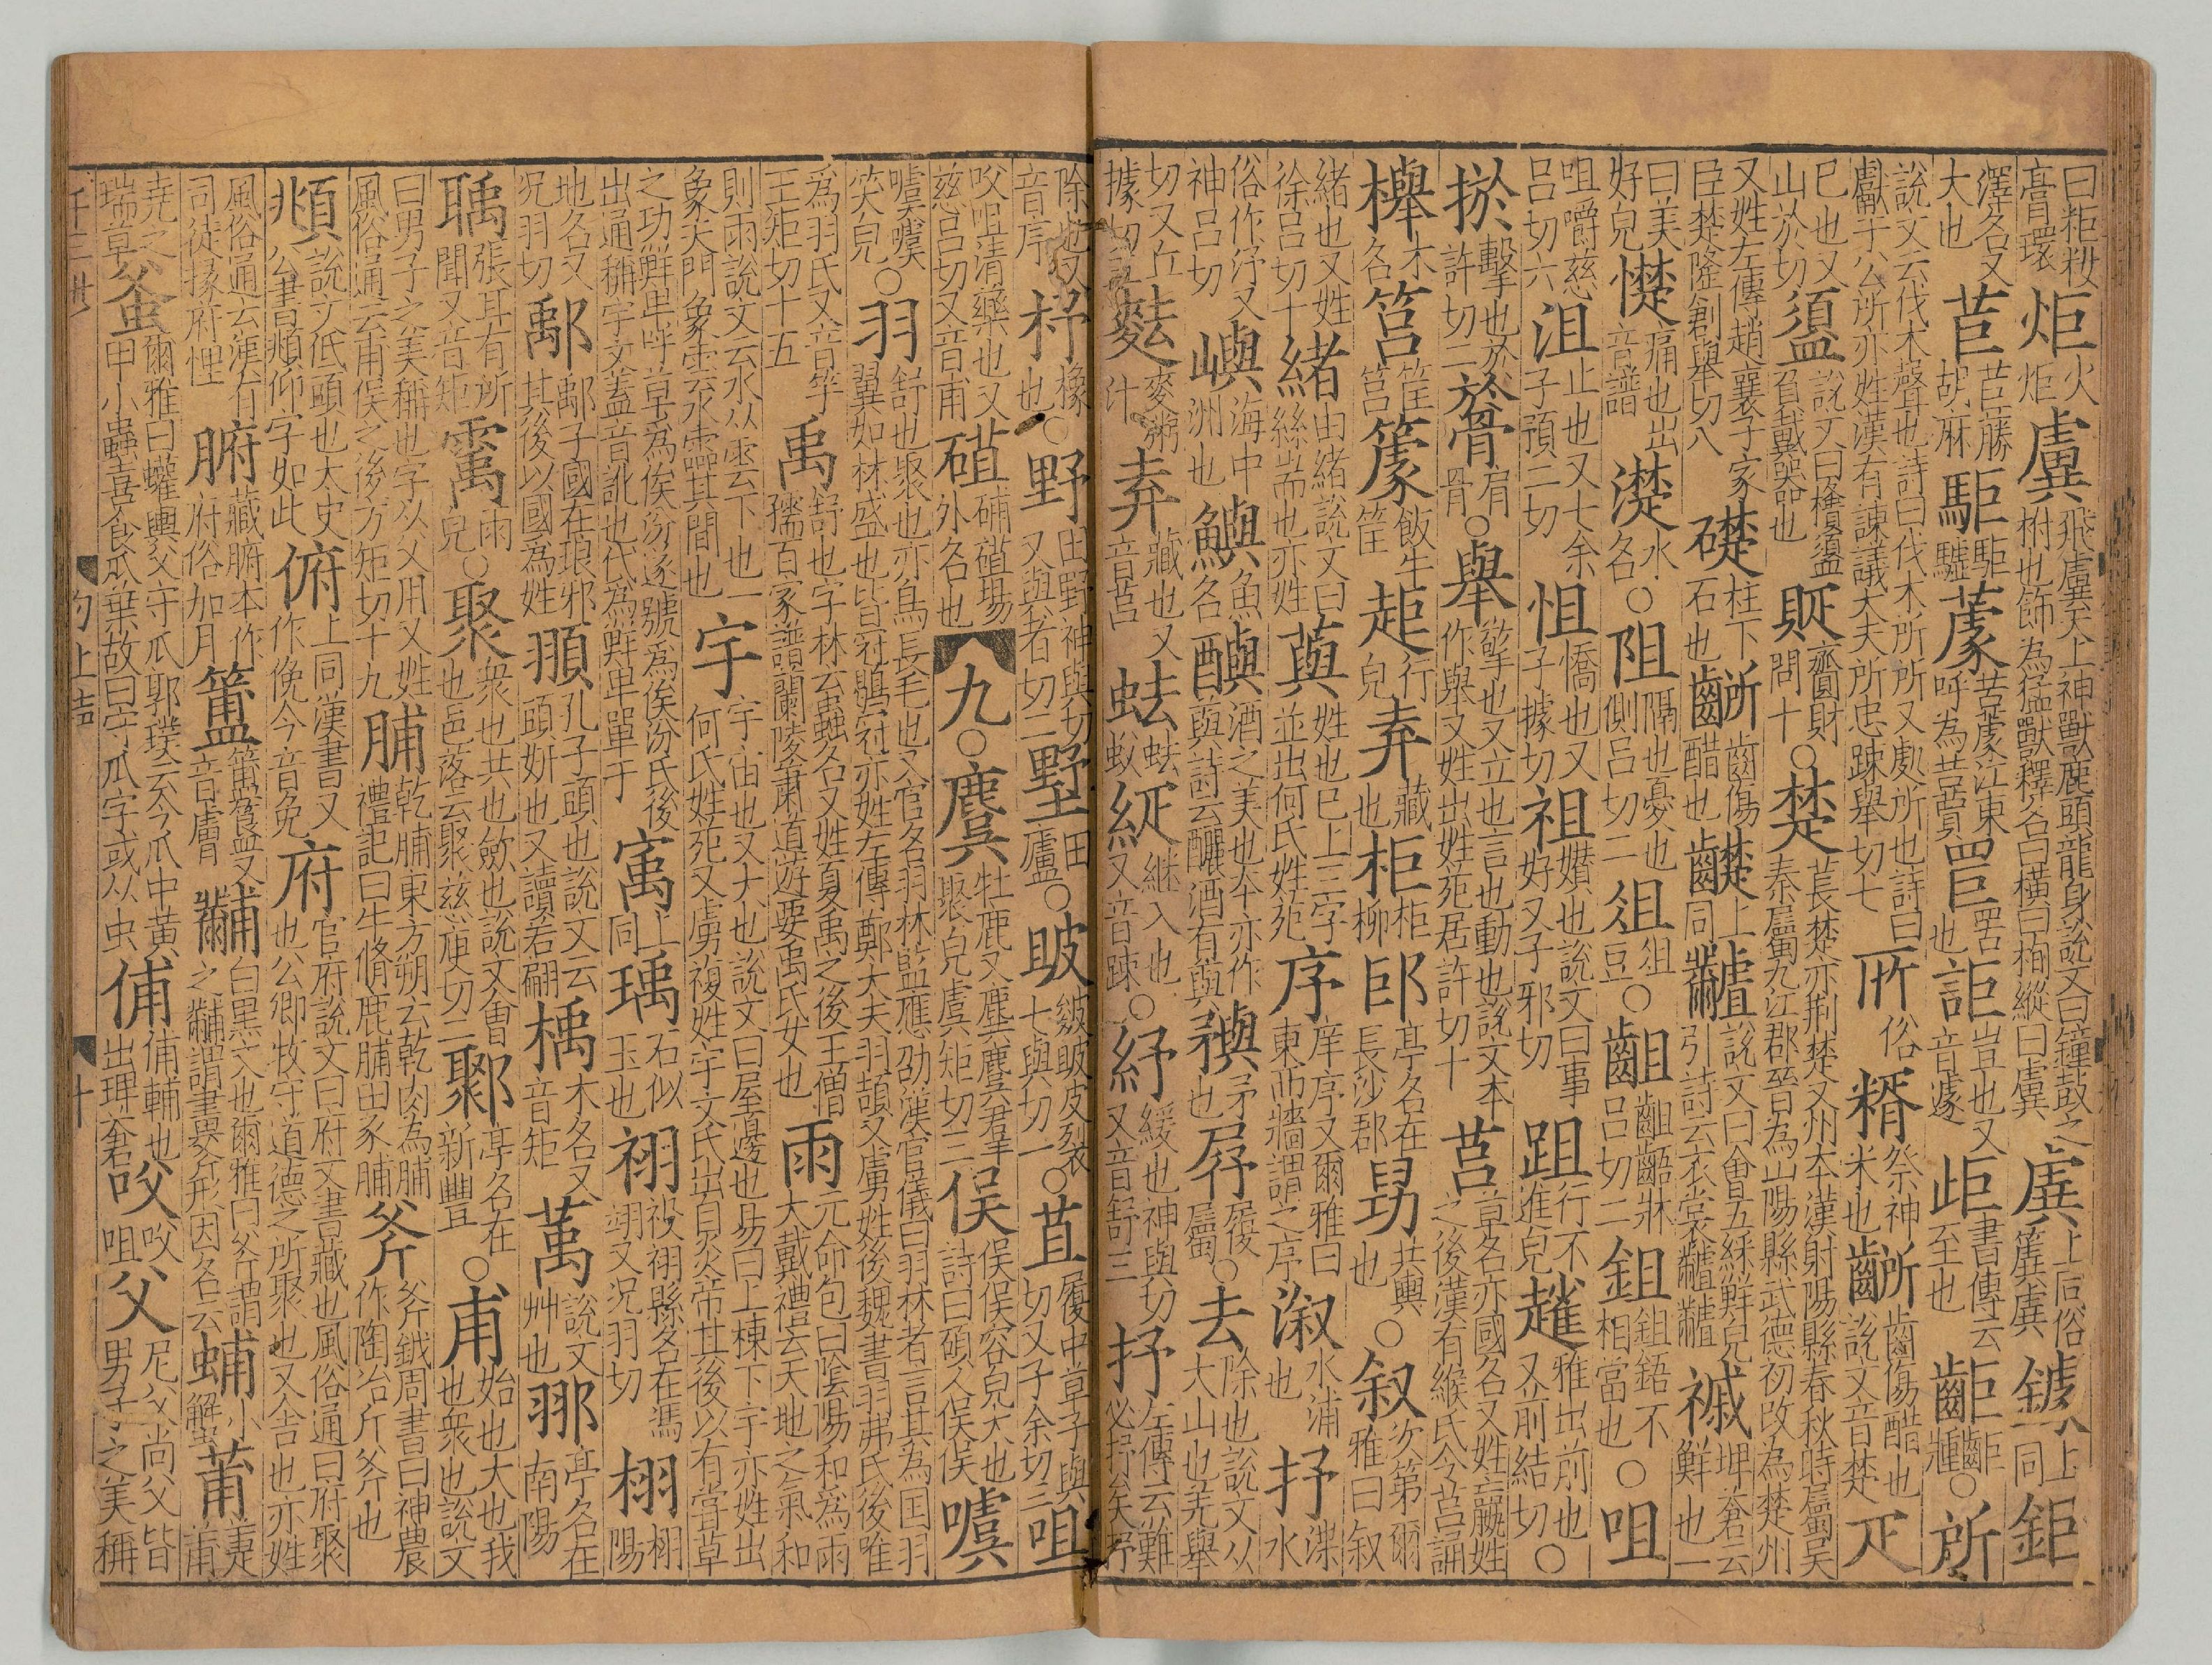 曰粔籹膏環 炬 火炬 虡 飛虡天上神獸鹿頭龍身說文曰鐘鼓之柎也飾為猛獸釋名曰橫曰栒縱曰虡 上同俗 鐻 上同 鉅
澤名又大也 苣 苣藤胡麻 駏 駏驉 蘧 苦蘧江東呼為苦蕒 罟也 詎 豈也又音遽 歫 書傳云至也 齒巨腫 ○所
說文云伐木聲也詩曰伐木所所又處所也詩曰獻于公所亦姓漢有諫議大夫所忠踈舉切七 俗 糈 祭神米也 齭 齒傷醋也說文音楚 疋
巳也又山於切 盨 說文曰㯱盨負戴器也 齎財問十 ○楚 萇楚亦荆楚又州本漢射陽縣春秋時屬吳秦屬九江郡晉為山陽縣武德初改為楚州
又姓左傳趙襄子家臣楚隆創舉切八 礎 柱下石也 齭 齒傷醋也 齼 上同 說文曰會五綵鮮皃引詩云衣裳 埤蒼云鮮也一
曰美好皃 憷 痛也出音譜 濋 水名 ○阻 隔也憂也側呂切二 俎 俎豆 ○齟 齟齬牀呂切二 鉏 鉏鋙不相當也 ○咀
咀嚼慈呂切六 沮 止也又七余子預二切 怚 憍也又子據切 說文曰事好又子邪切 跙 行不進皃 雅出前也又前結切 ○
擊也於許切二 肩骨 ○舉 擎也又立也言也動也說文本作舉又姓出姓苑居許切十 莒 草名亦國名又姓嬴姓之後漢有緱氏令莒誦
櫸 木名 筥 筐筥 籧 飯牛筐 行皃 弆 藏也 柜 柜柳 亭名在長沙郡 共輿也 ○叙 次第爾雅曰叙
緒也又姓徐呂切十 緒 由緒說文曰絲耑也亦姓 藇 姓也巳上三字並出何氏姓苑 序 庠序又爾雅曰東西牆謂之序 漵 水浦也 抒 渫水
俗作汿又神呂切 嶼 海中洲也 鱮 魚名 酒之美也本亦作藇詩云釃酒有藇 矛也 履屬 ○去 除也說文从大山也羌舉
切又丘據切 麮 麥粥汁 弆 藏也又音莒 継入也又音踈 ○紓 緩也神與切又音舒三 抒 左傳云難必抒矣抒
除也又音序 杼 橡也 ○野 田野神與切又與者切二 墅 田廬 ○ 皴皮裂七與切一 ○苴 履中草子與切又子余切二 咀
㕮咀清藥也又慈呂切又音甫 外名也 九 ○麌 牡鹿又麈麌君羊聚皃虞矩切三 俁 俁俁容皃大也詩曰碩人俁俁 噳
噳噳笑皃 ○羽 舒也聚也亦鳥長毛也又官名羽林監應劭漢官儀曰羽林者言其為国羽翼如林盛也皆冠鶡冠亦姓左傳鄭大夫羽頡又虜姓後魏書羽弗氏後唯
為羽氏又音竽王矩切十五 禹 舒也字林云蟲名又姓夏禹之後王僧孺百家譜蘭陵蕭道遊要禹氏女也 雨 元命包曰陰陽和為雨大戴禮云天地之氣和
則雨說文云水从雲下也一象天門象雲水霝其間也 宇 宇宙也又大也說文曰屋邊也易曰上棟下宇亦姓出何氏姓苑又虜複姓宇文氏出自炎帝其後以有嘗草
之功鮮卑呼草為俟汾遂號為俟汾氏後出通稱宇文蓋音訛也代為鮮卑單于 㝢 上同 瑀 石似玉也 祤 祋祤縣名在馮翊又況羽切 栩 栩陽
地名又況羽切 鄅 鄅子國在琅邪其後以國為姓 頨 孔子頭也說文云頭妍也又讀若翩 楀 木名又音矩 萭 說文艸也 亭名在南陽
聥 張耳有所聞又音矩 雨皃 ○聚 衆也共也斂也說文會也邑落云聚慈庾切二 鄹 亭名在新豐 ○甫 始也大也我也衆也說文
曰男子之美稱也字从父用又姓風俗通云甫侯之後方矩切十九 脯 乾脯東方朔云乾肉為脯禮記曰牛脩鹿脯田豕脯 斧 斧鉞周書曰神農作陶冶斤斧也
頫 說文低頭也太史公書頫仰字如此 俯 上同漢書又作俛今音免 府 官府說文曰府文書藏也風俗通曰府聚也公卿牧守道德之所聚也又舍也亦姓
風俗通云漢有司徒掾府悝 腑 藏腑本作府俗加月 簠 簠簋又音膚 黼 白黑文也爾雅曰斧謂之黼謂畫斧形因名云 蜅 小蟹 莆 萐莆
堯之瑞草 蚥 爾雅曰蠸輿父守瓜郭璞云今瓜中黃甲小蟲喜食瓜葉故曰守瓜字或从虫 俌 俌輔也出埤蒼 㕮 㕮咀 父 尼父尚父皆男子之美稱
勻上声 十